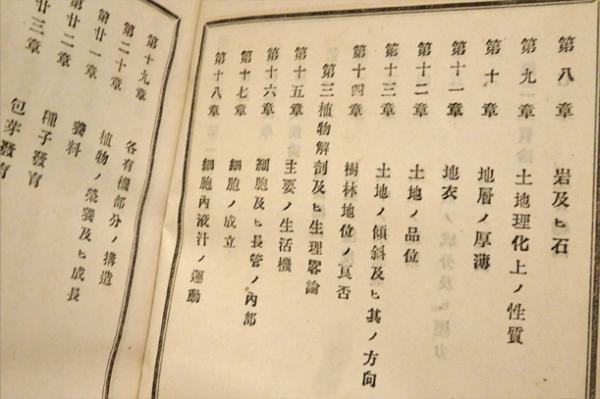 第八章 岩及ヒ石
第九章 土地理化上ノ性質
第十章 地層ノ厚薄
第十一章 地衣
第十二章 土地ノ品位
第十三章 土地ノ傾斜及ヒ其ノ方向
第十四章 樹林地位ノ良否
第三植物解剖及ヒ生理畧論
第十五章 主要ノ生活機
第十六章 細胞及ヒ長管ノ内部
第十七章 細胞ノ成立
第十八章 細胞內液汁ノ運動
第十九章 各有機部分ノ搆造
第二十章 植物ノ榮養及ヒ成長
第廿一章 養料
第廿二章 種子發育
第廿三章 包芽發育